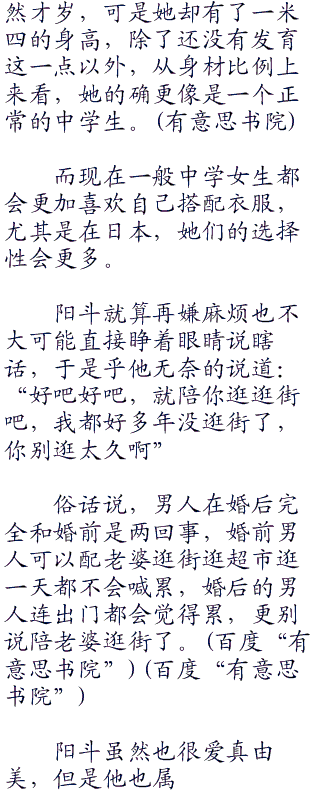 然才岁，可是她却有了一米
四的身高，除了还没有发育
这一点以外，从身材比例上
来看，她的确更像是一个正
常的中学生。(有意思书院)
而现在一般中学女生都
会更加喜欢自己搭配衣服，
尤其是在日本，她们的选择
性会更多。
阳斗就算再嫌麻烦也不
大可能直接睁着眼睛说瞎
话，于是乎他无奈的说道：
“好吧好吧，就陪你逛逛街
吧，我都好多年没逛街了，
你别逛太久啊”
俗话说，男人在婚后完
全和婚前是两回事，婚前男
人可以配老婆逛街逛超市逛
一天都不会喊累，婚后的男
人连出门都会觉得累，更别
说陪老婆逛街了。(百度“有
意思书院”)(百度“有意思
书院”)
阳斗虽然也很爱真由
美，但是他也属